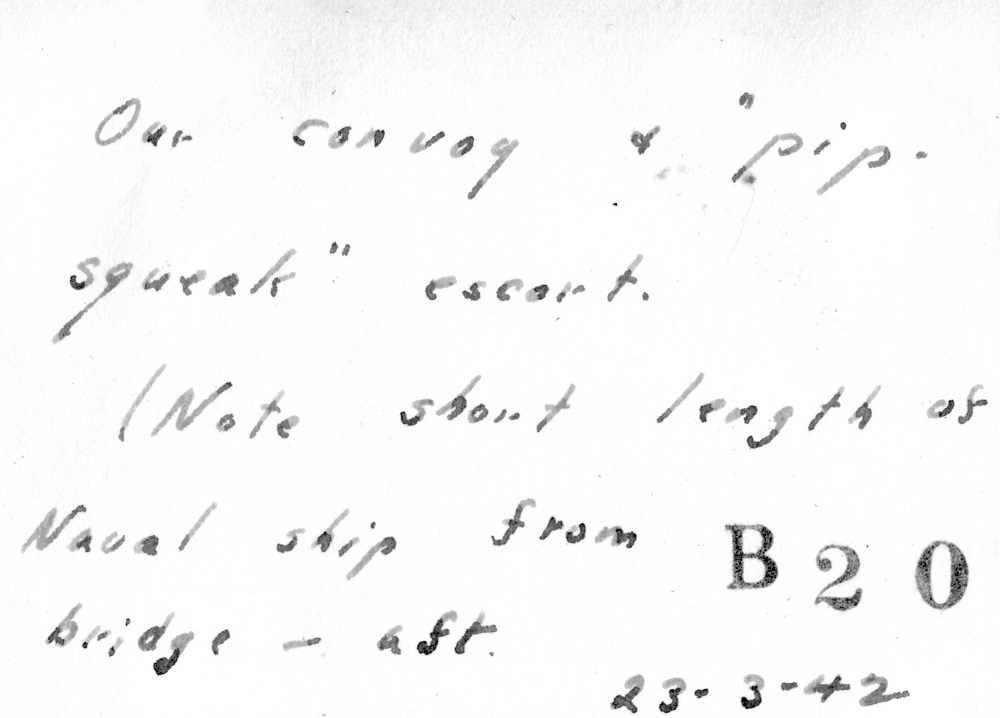 Our convoy & "pip-
squeak" escort.
(Note short length of
Naval ship from
B 20
bridge – aft.
23-3-42